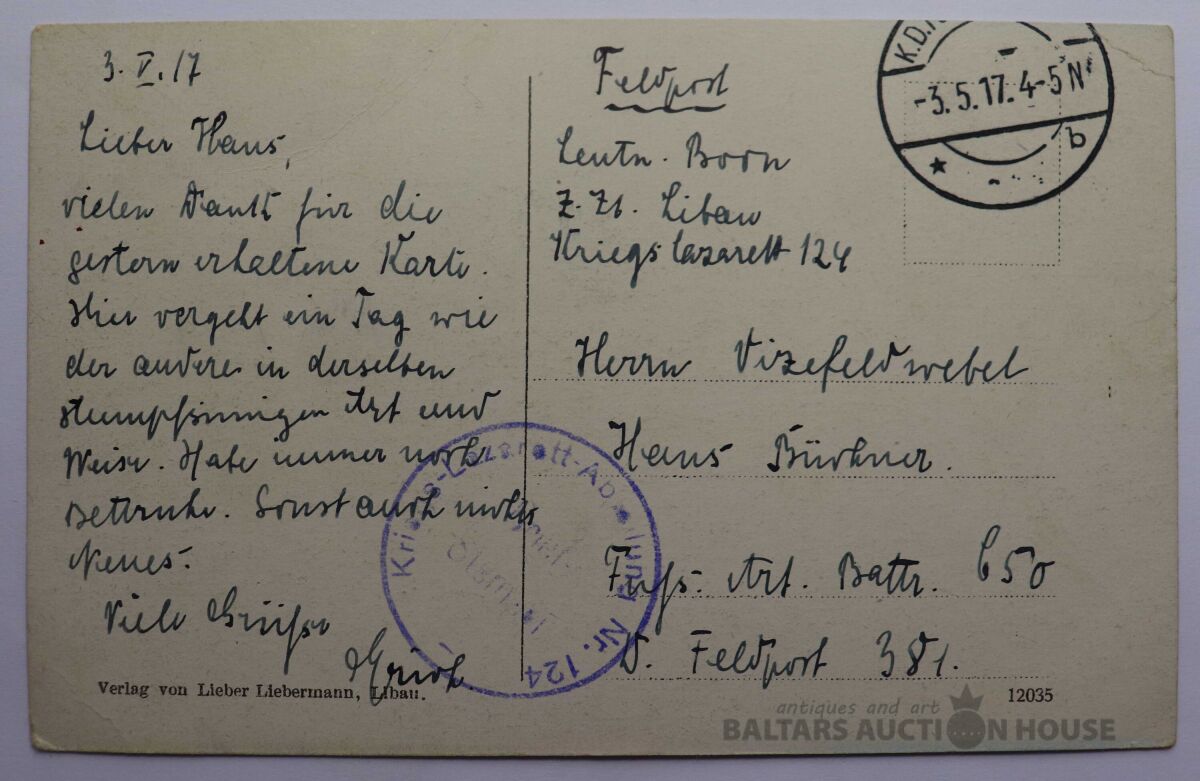 3. V. 17
Lieber Hans,
vielen Dank für die
gestern erhaltene Karte.
Hier vergeht ein Tag wie
der andere in derselben
stumpfsinnigen Art und
Weise. Habe immer noch
Bettruhe. Sonst auch nichts
Neues.
Viele Grüsse
Erich
Verlag von Lieber Liebermann, Libau.
Feldpost
Leutn. Born
Z. Zt. Libau
Kriegslazarett 124
Herrn Vizefeldwebel
Hans Bürkner.
Fuss. Art. Battr. 650
D. Feldpost 381.
12035
K.D.
-3.5.17.4-5N
* b
Kriegs-Lazarett-Abteilung Nr. 124
Brief-
Stempel
antiques and art
BALTARS AUCTION HOUSE